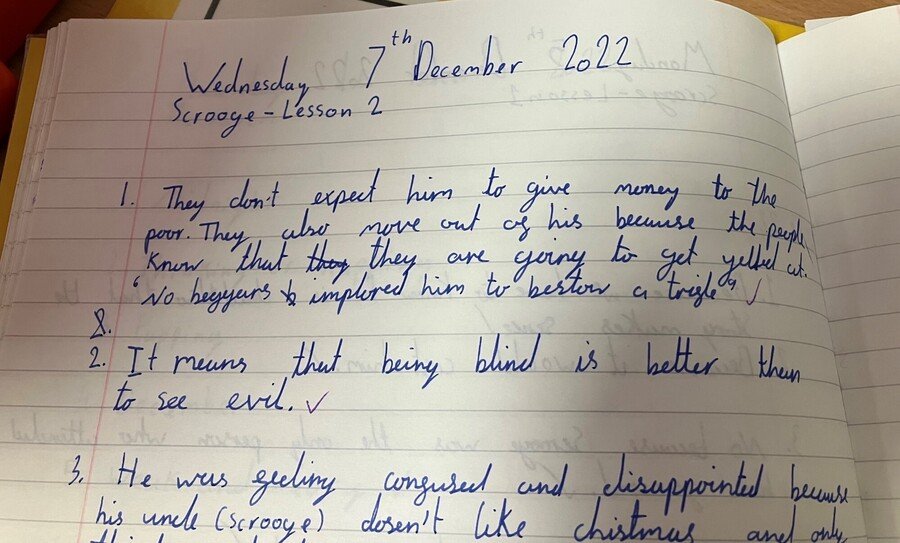 Wednesday 7th December 2022
Scrooge - Lesson 2
1. They don't expect him to give money to the
poor. They also move out of his because the people
know that they they are going to get yelled at.
"No beggars implored him to bestow a trifle" ✓
8.
2. It means that being blind is better than
to see evil. ✓
3. He was feeling confused and disappointed because
his uncle (scrooge) dosen't like chistmas and only